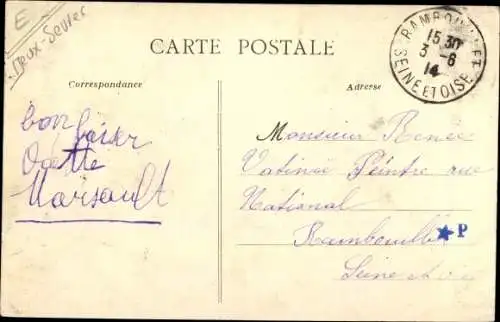 E
Deux-Sèvres
CARTE POSTALE
RAMBOUILLET
15 30
3 - 6
14
SEINE ET OISE
Correspondance
Adresse
bon
baiser
Odette
Marsault
Monsieur Renée
Vatinée Peintre rue
National
Rambouillet
Seine et
P